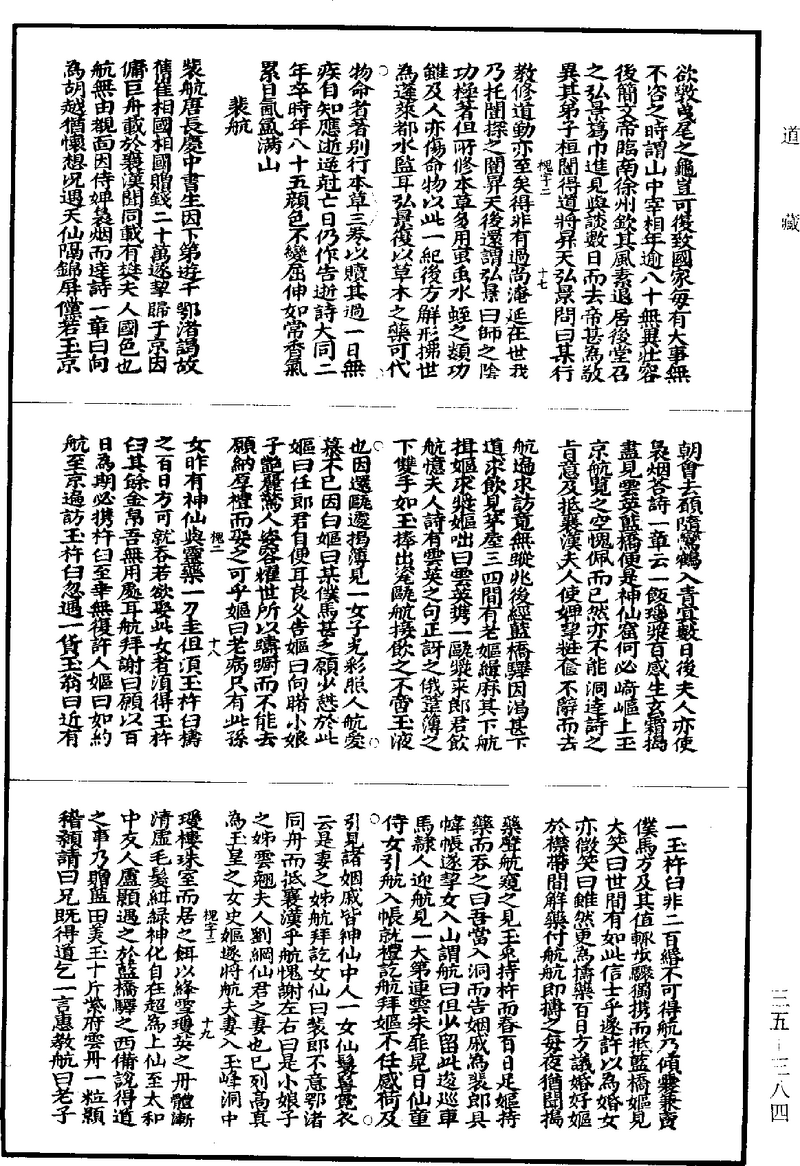 道藏
欲斅曳尾之龜豈可復致國家每有大事無
不咨之時謂山中宰相年逾八十無異壯容
後簡文帝臨南徐州欽其風素退居後堂召
之弘景葛巾進見與談數日而去帝甚為敬
異其弟子桓闓得道將昇天弘景問曰某行
槐十二
十七
教修道勤亦至矣得非有過尚淹延在世我
乃托闓探之闓昇天後還謂弘景曰師之陰
功極著但所修本草多用虻虫水蛭之類功
雖及人亦傷命物以此一紀後方解形拂世
為蓬萊都水監耳弘景復以草木之藥可代
物命者著別行本草三卷以贖其過一日無
疾自知應逝逆尅亡日仍作告逝詩大同二
年卒時年八十五顏色不變屈伸如常香氣
累日氤氳滿山
裴航
裴航唐長慶中書生因下第遊于鄂渚謁故
舊崔相國相國贈錢二十萬遂挈歸于京因
傭巨舟載於襄漢聞同載有樊夫人國色也
航無由覿面因侍婢裊烟而達詩一章曰向
為胡越猶懷想況遇天仙隔錦屏儻若玉京
朝會去願隨鸞鶴入青冥數日後夫人亦使
裊烟答詩一章云一飲瓊漿百感生玄霜搗
盡見雲英藍橋便是神仙窟何必崎嶇上玉
京航覽之空愧佩而已然亦不能洞達詩之
旨意及抵襄漢夫人使婢挈粧奩不辭而去
航遍求訪竟無蹤兆後經藍橋驛因渴甚下
道求飲見茅屋三四間有老嫗緝麻其下航
揖嫗求漿嫗咄曰雲英擕一甌漿來郎君飲
航憶夫人詩有雲英之句正訝之俄葦簿之
下雙手如玉捧出瓷甌航接飲之不啻玉液
也因還甌遽揭薄見一女子光彩照人航愛
慕不已因白嫗曰某僕馬甚乏願少憇於此
嫗曰任郎君自便耳良久告嫗曰向睹小娘
子艷麗驚人姿容耀世所以躊躕而不能去
願納厚禮而娶之可乎嫗曰老病只有此孫
槐二
十八
女昨有神仙與靈藥一刀圭但須玉杵臼擣
之百日方可就吞若欲娶此女者須得玉杵
臼其餘金帛吾無用處耳航拜謝曰願以百
日為期必擕杵臼至幸無復許人嫗曰如約
航至京遍訪玉杵臼忽遇一貨玉翁曰近有
一玉杵臼非二百緡不可得航乃傾囊兼賣
僕馬方及其值輒步驟獨擕而抵藍橋嫗見
大笑曰世間有如此信士乎遂許以為婚女
亦微笑曰雖然更為擣藥百日方議婚好嫗
於襟帶間解藥付航航即擣之每夜猶聞搗
藥聲航窺之見玉兔持杵而舂百日足嫗持
藥而吞之曰吾當入洞而告姻戚為裴郎具
幃帳遂挈女入山謂航曰但少留此逡巡車
馬隸人迎航見一大第連雲朱扉晃日仙童
侍女引航入帳就禮訖航拜嫗不任感荷及
引見諸姻戚皆紳仙中人一女仙鬟髻霓衣
云是妻之姊航拜訖女仙曰裴郎不意鄂渚
同舟而抵襄漢乎航愧謝左右曰是小娘子
之姊雲翹夫人劉綱仙君之妻也已列高真
為玉皇之女史嫗遂將航夫妻入玉峰洞中
槐字十二
十九
瓊樓珠室而居之餌以絳雪瓊英之丹體漸
清虛毛髮紺綠神化自在超為上仙至太和
中友人盧顥遇之於藍橋驛之西備說得道
之事乃贈藍田美玉十斤紫府雲丹一粒顥
稽顙請曰兄既得道乞一言惠教航曰老子
三五—三八四